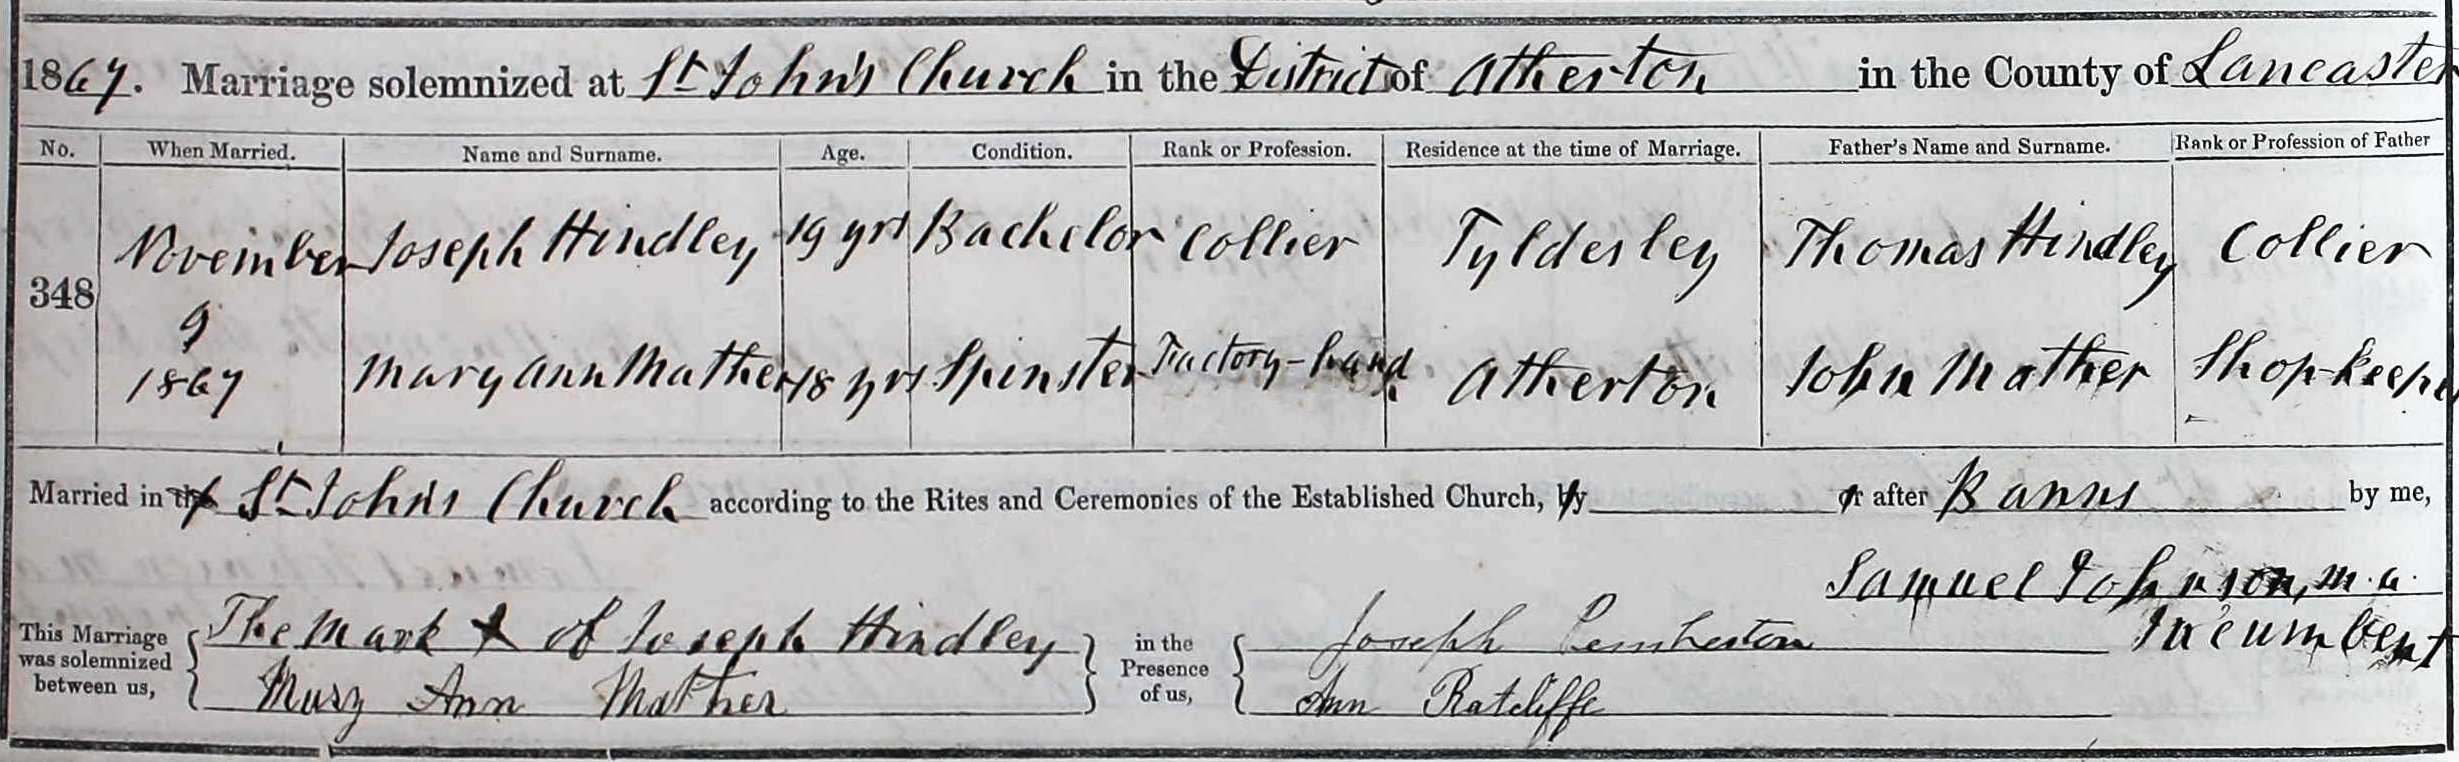 1867. Marriage solemnized at St John's Church in the District of Atherton in the County of Lancaster
No. When Married. Name and Surname. Age. Condition. Rank or Profession. Residence at the time of Marriage. Father's Name and Surname. Rank or Profession of Father
348 November 9 1867
Joseph Hindley 19 yrs Bachelor Collier Tyldesley Thomas Hindley Collier
Mary Ann Mather 18 yrs Spinster Factory-hand Atherton John Mather Shop-keeper
Married in the St John's Church according to the Rites and Ceremonies of the Established Church, by or after Banns by me,
Samuel Johnson, M.A.
Incumbent
This Marriage was solemnized between us, The Mark X of Joseph Hindley in the Presence of us, Joseph Pemberton
Mary Ann Mather Ann Ratcliffe